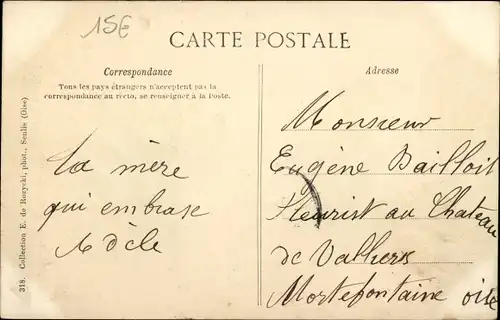 15€
CARTE POSTALE
Correspondance
Tous les pays étrangers n'acceptent pas la
correspondance au recto, se renseigner à la Poste.
Adresse
ta mère
qui embrase
Adèle
Monsieur
Eugène Bailloit
Fleurist au Chateau
de Valliers
Mortefontaine oise
318. Collection E. de Rozycki, phot., Senlis (Oise)